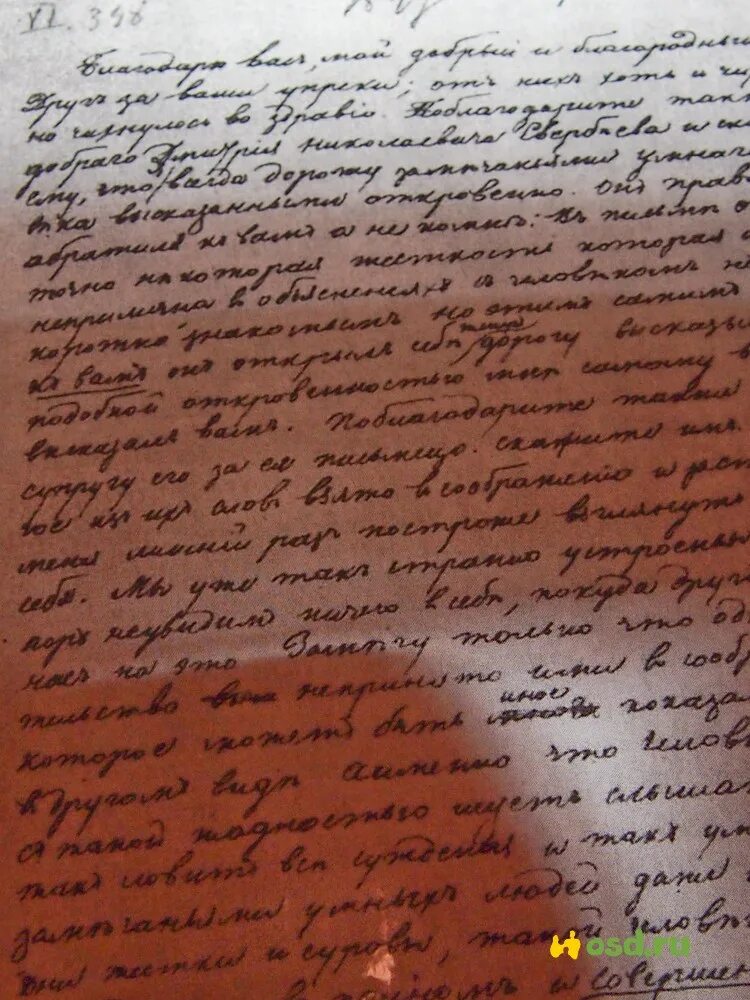 VI. 398
Благодарю васъ, мой добрый и благородный
Другъ за ваши упреки; отъ нихъ хоть и чи
но чихнулось во здравіе. Поблагодарите так
добраго Дмитрія Николаевича Свербѣева и ска
ему, что всегда дорожу замѣчаніями умнаго
ка высказанными откровенно. Онъ прав
обратился къ вамъ а не ко мнѣ. Въ письмѣ
точно нѣкоторая жесткость которая
неприлична в объясненіях с человѣкомъ не
коротко знакомымъ но этимъ самимъ
къ вамъ онъ открылъ себѣ теперь дорогу высказы
подобной откровенностью мнѣ самому в
высказалъ вамъ. Поблагодарите также
супругу его за ея письмецо. скажите имъ
гое изъ ихъ словъ взято в соображеніе и заст
меня лишній разъ построже взглянуть
себя. Мы уже такъ странно устроены
поръ неувидимъ ничего в себѣ, покуда друг
насъ на это Замѣчу только что од
тельство непринято ими в сообр
которое можетъ быть иное показа
в другомъ видѣ а именно что человѣ
с такой жадностью ищетъ слышат
такъ ловитъ всѣ сужденія и такъ ум
замѣчаньями умныхъ людей даже
они жестки и суровы, такой человѣ
и совершен
osd.ru